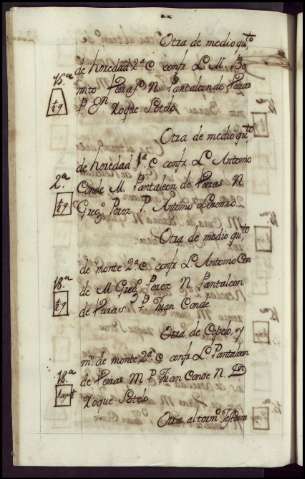 Otra de medio qto
de heredad 2ª C confr L. M. Be
nito Peras P. N Pantaleon de Peras
P. Dn Roque Potdo
18ª
Otra de medio qto
de heredad 1ª C confr L. Antonio
Conde M. Pantaleon de Peras N
Gregº Perez P. Antonio
2ª
Otra de medio qto
de monte 2ª C confr L. Antonio Con
de M Gregº Perez N Pantaleon
de Peras P. Juan Conde
18ª
Otra de y
mº de monte 2ª C confr L. Pantaleon
de Peras M P. Juan Conde N Dn
Roque Potdo
18ª
Otra al